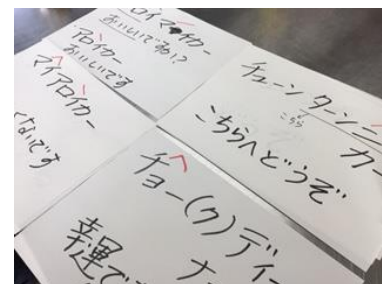 ロイマイカー
おいしいですか?
アロイカー
おいしいです
マイアロイカー
くないです
チューン ターンニー
こちら
カー
こちらへどうぞ
チョー(ク)ディー
ナ
幸運で